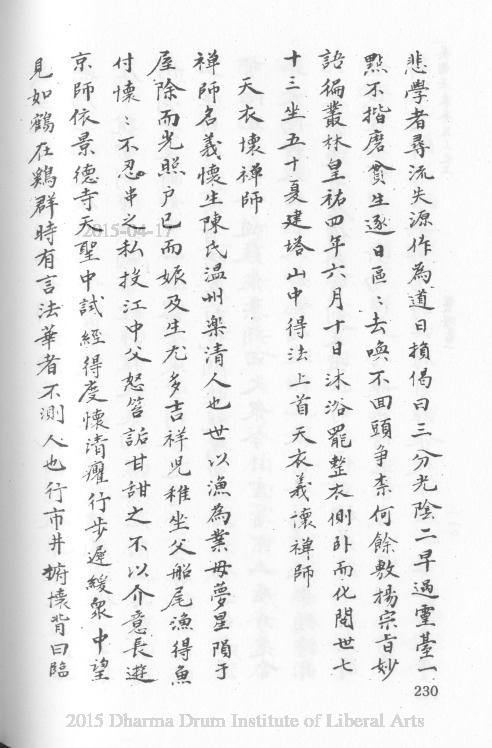 悲學者尋流失源作為道日損偈曰三分光陰二早過靈臺一
點不揩磨貪生逐日區〻去喚不回頭爭柰何餘敷揚宗旨妙
語徧叢林皇祐四年六月十日沐浴罷整衣側卧而化閱世七
十三坐五十夏建塔山中得法上首天衣義懷禪師
天衣懷禪師
禪師名義懷生陳氏温州樂清人也世以漁為業母夢星隕于
屋除而光照户已而娠及生尤多吉祥兒稚坐父船尾漁得魚
付懷〻不忍串之私投江中父怒笞詬甘甜之不以介意長遊
京師依景德寺天聖中試經得度懷清癯行步遲緩衆中望
見如鶴在鷄群時有言法華者不測人也行市井拊懷背曰臨
230
2015-04-17
2015 Dharma Drum Institute of Liberal Arts